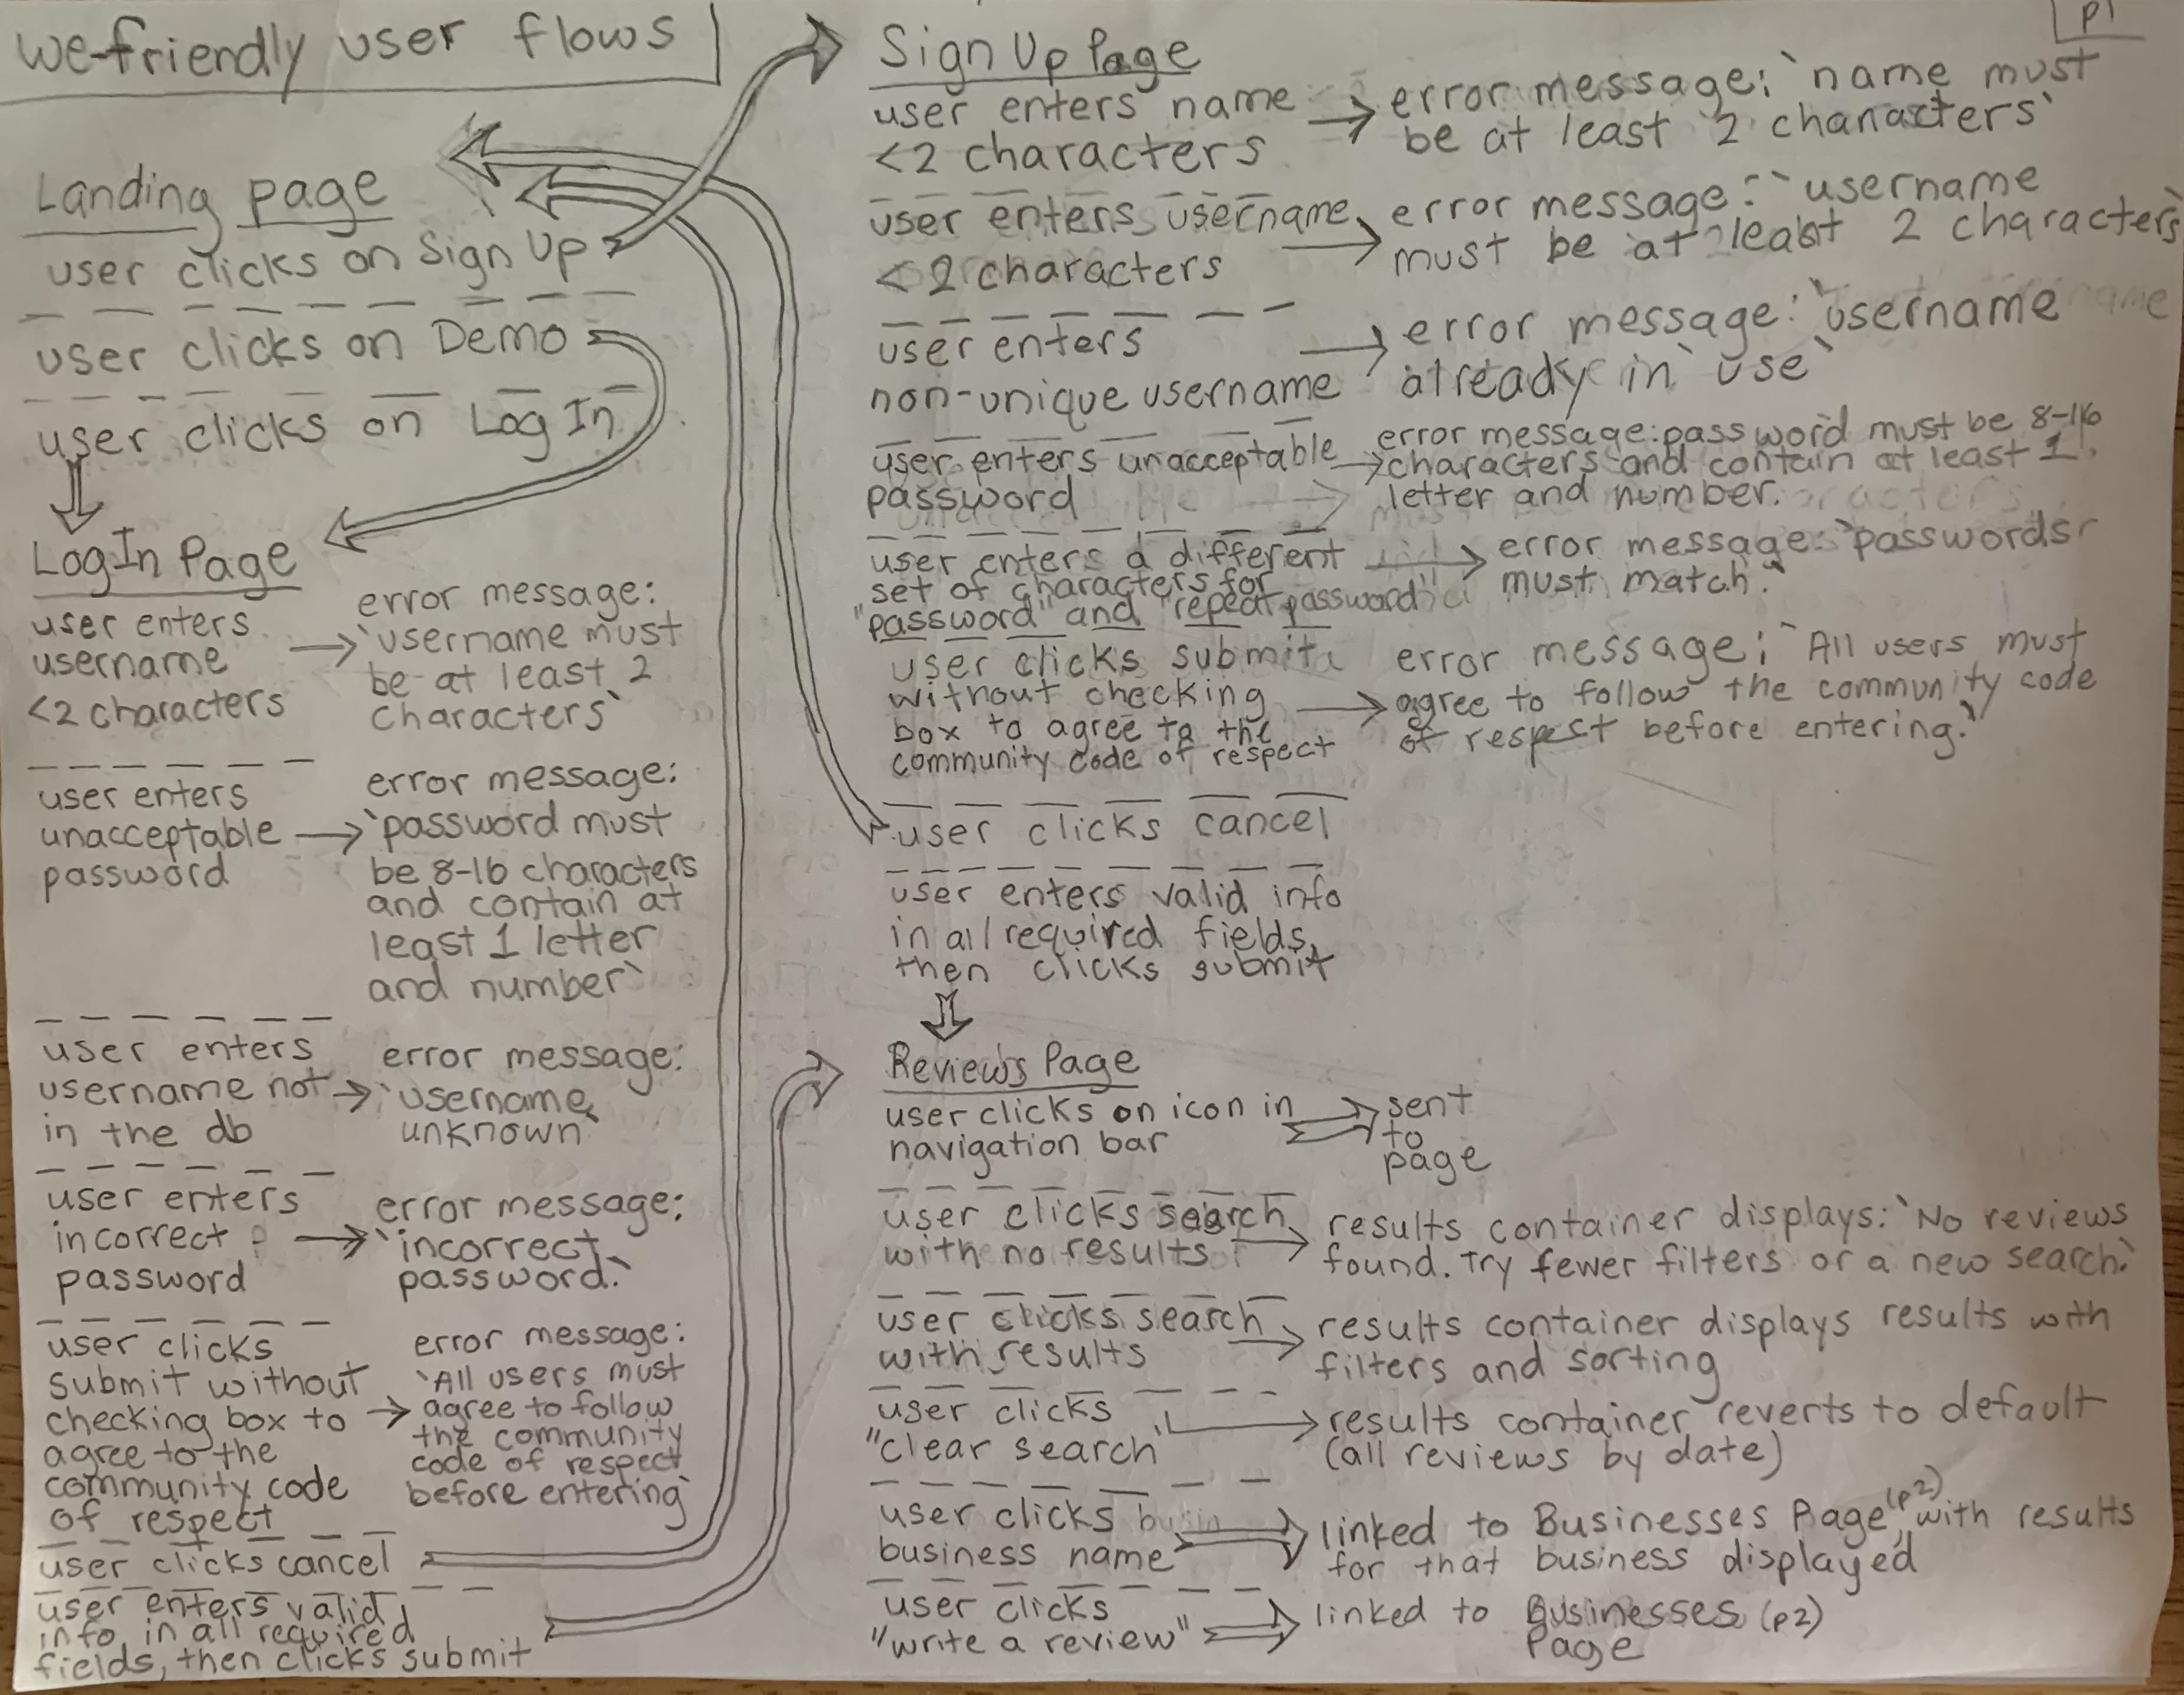 we-friendly user flows
p1
Landing page
user clicks on Sign Up
user clicks on Demo
user clicks on Log In
Log In Page
user enters
username
<2 characters
error message:
`username must
be at least 2
characters`
user enters
unacceptable
password
error message:
`password must
be 8-16 characters
and contain at
least 1 letter
and number`
user enters
username not
in the db
error message:
`username
unknown`
user enters
incorrect
password
error message:
`incorrect
password.`
user clicks
submit without
checking box to
agree to the
community code
of respect
error message:
`All users must
agree to follow
the community
code of respect
before entering`
user clicks cancel
user enters valid
info in all required
fields, then clicks submit
Sign Up Page
user enters name
<2 characters
error message: `name must
be at least 2 characters`
user enters username
<2 characters
error message: `username
must be at least 2 characters`
user enters
non-unique username
error message: `username
already in use`
user enters unacceptable
password
error message: password must be 8-16
characters and contain at least 1
letter and number.
user enters a different
set of characters for
"password" and "repeat password"
error message: `passwords
must match.`
user clicks submit
without checking
box to agree to the
community code of respect
error message: `All users must
agree to follow the community code
of respect before entering.`
user clicks cancel
user enters valid info
in all required fields,
then clicks submit
Reviews Page
user clicks on icon in
navigation bar
sent
to
page
user clicks search
with no results
results container displays: `No reviews
found. Try fewer filters or a new search.`
user clicks search
with results
results container displays results with
filters and sorting
user clicks
"clear search"
results container reverts to default
(all reviews by date)
user clicks
business name
linked to Businesses Page (p2), with results
for that business displayed
user clicks
"write a review"
linked to Businesses (p2)
Page